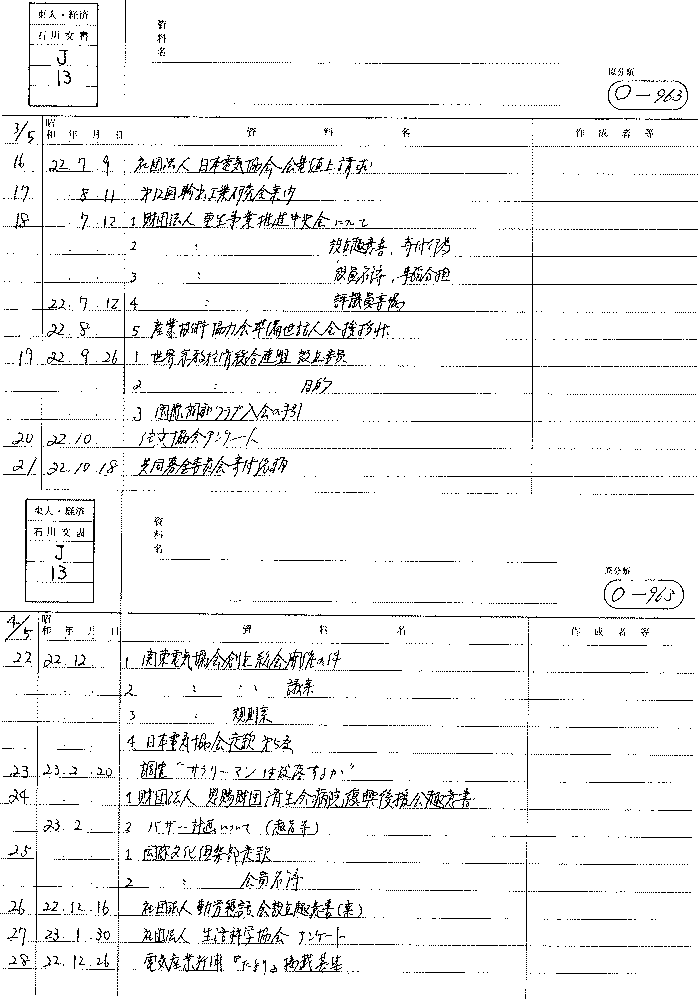 東大・経済
石川文書
J
13
資料名
原分類
O-963
3/5 昭和 年 月 日 資 料 名 作成者等
16 22 7 9 社団法人 日本電気協会 会費値上請求
17 8 11 第12回輸出工業研究会案内
18 7 12 1 財団法人 更生事業推進中央会について
2 〃 設立趣意書、寄付行為
3 〃 役員名簿、
22.7.12 4 〃 評議員
22.8 5 産業技術協力会準備世話人会
19 22 9 26 1 世界 連盟 設立委員
2 〃 目的
3 国際 クラブ入会の手引
20 22.10 協会アンケート
21 22.10.18 共同募金委員会寄付依頼
東大・経済
石川文書
J
13
資料名
原分類
O-963
4/5 昭和 年 月 日 資 料 名 作成者等
22 22.12 1 関東電気協会創立総会開催の件
2 〃 〃 議案
3 〃 規則案
4 日本電気協会定款
23 23.2.20 調査 "サラリーマンは没落するか"
24 1 財団法人 恩賜財団済生会病院復興後援会趣意書
23.2 2 バザー計画について (趣旨等)
25 1 国際文化倶楽部定款
2 〃 会員名簿
26 22.12.16 社団法人 会設立趣意書(案)
27 23.1.30 社団法人 生活科学協会 アンケート
28 22.12.26 電気産業新聞『たより』掲載